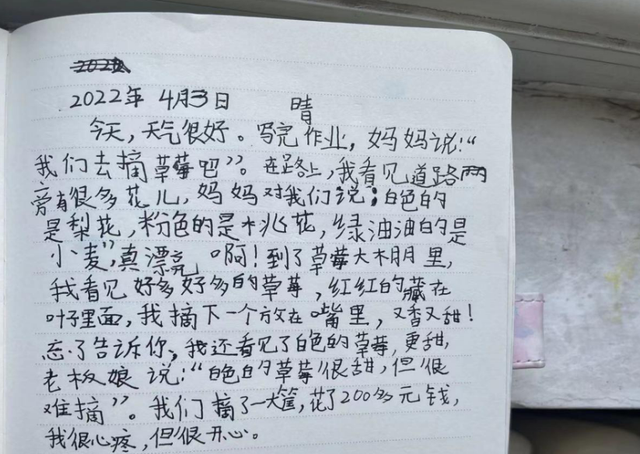 2022年 4月3日 晴
今天，天气很好。写完作业，妈妈说：“
我们去摘草莓吧”。在路上，我看见道路两
旁有很多花儿，妈妈对我们说；白色的
是梨花，粉色的是桃花，绿油油的是
小麦”，真漂亮啊！到了草莓大棚里，
我看见好多好多的草莓，红红的藏在
叶子里面，我摘下一个放在嘴里，又香又甜！
忘了告诉你，我还看见了白色的草莓，更甜，
老板娘说：“白色的草莓很甜，但很
难摘”。我们摘了一大筐，花了200多元钱，
我很心疼，但很开心。